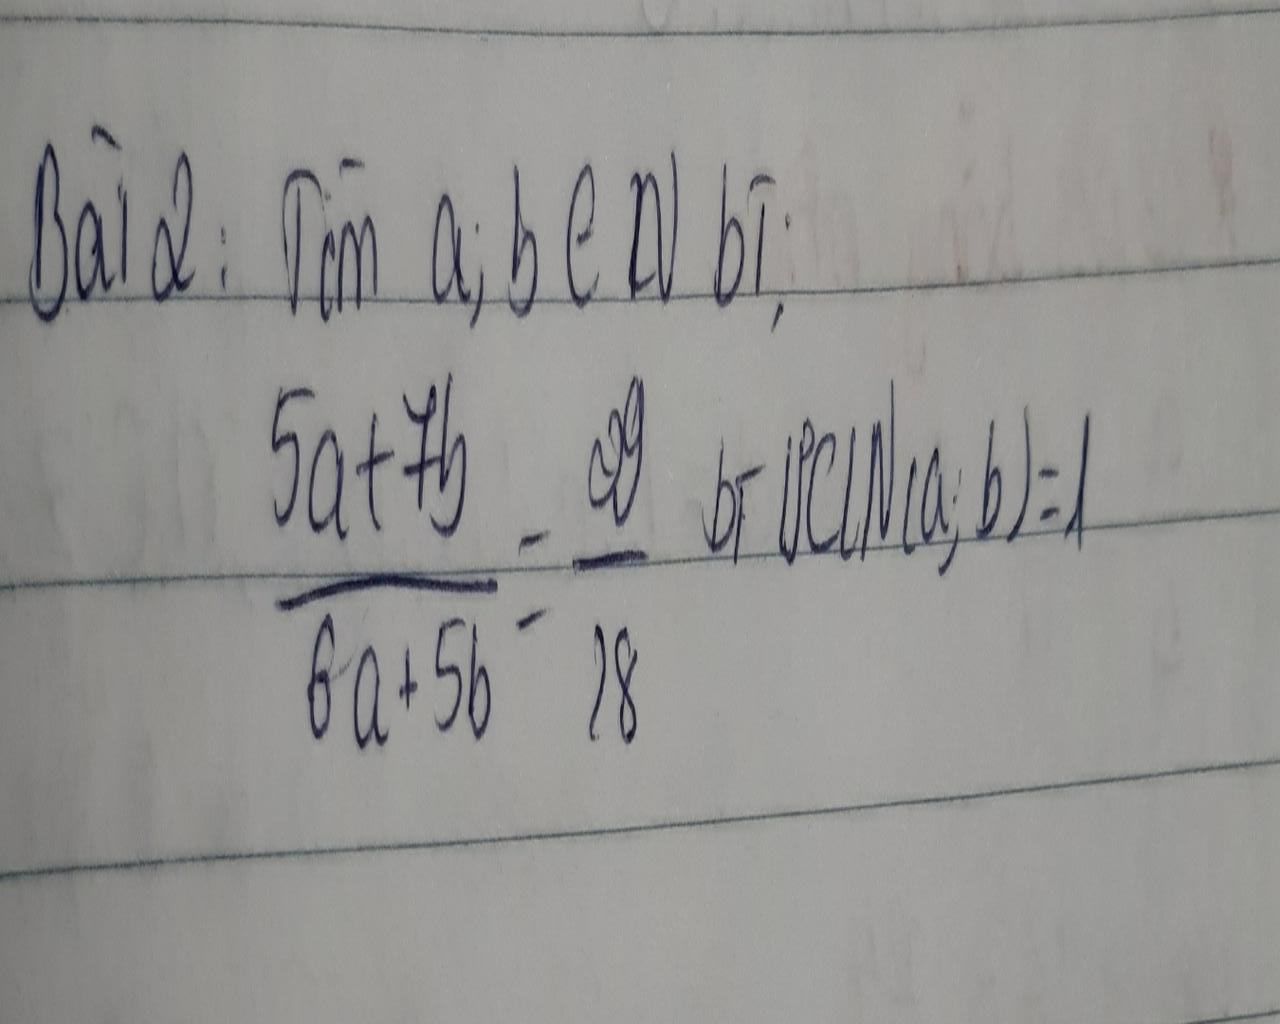 Bài 2: Tìm a; b ∈ N bT;
5a+7b = 29 bT ƯCLN(a; b)=1
6a+5b 28